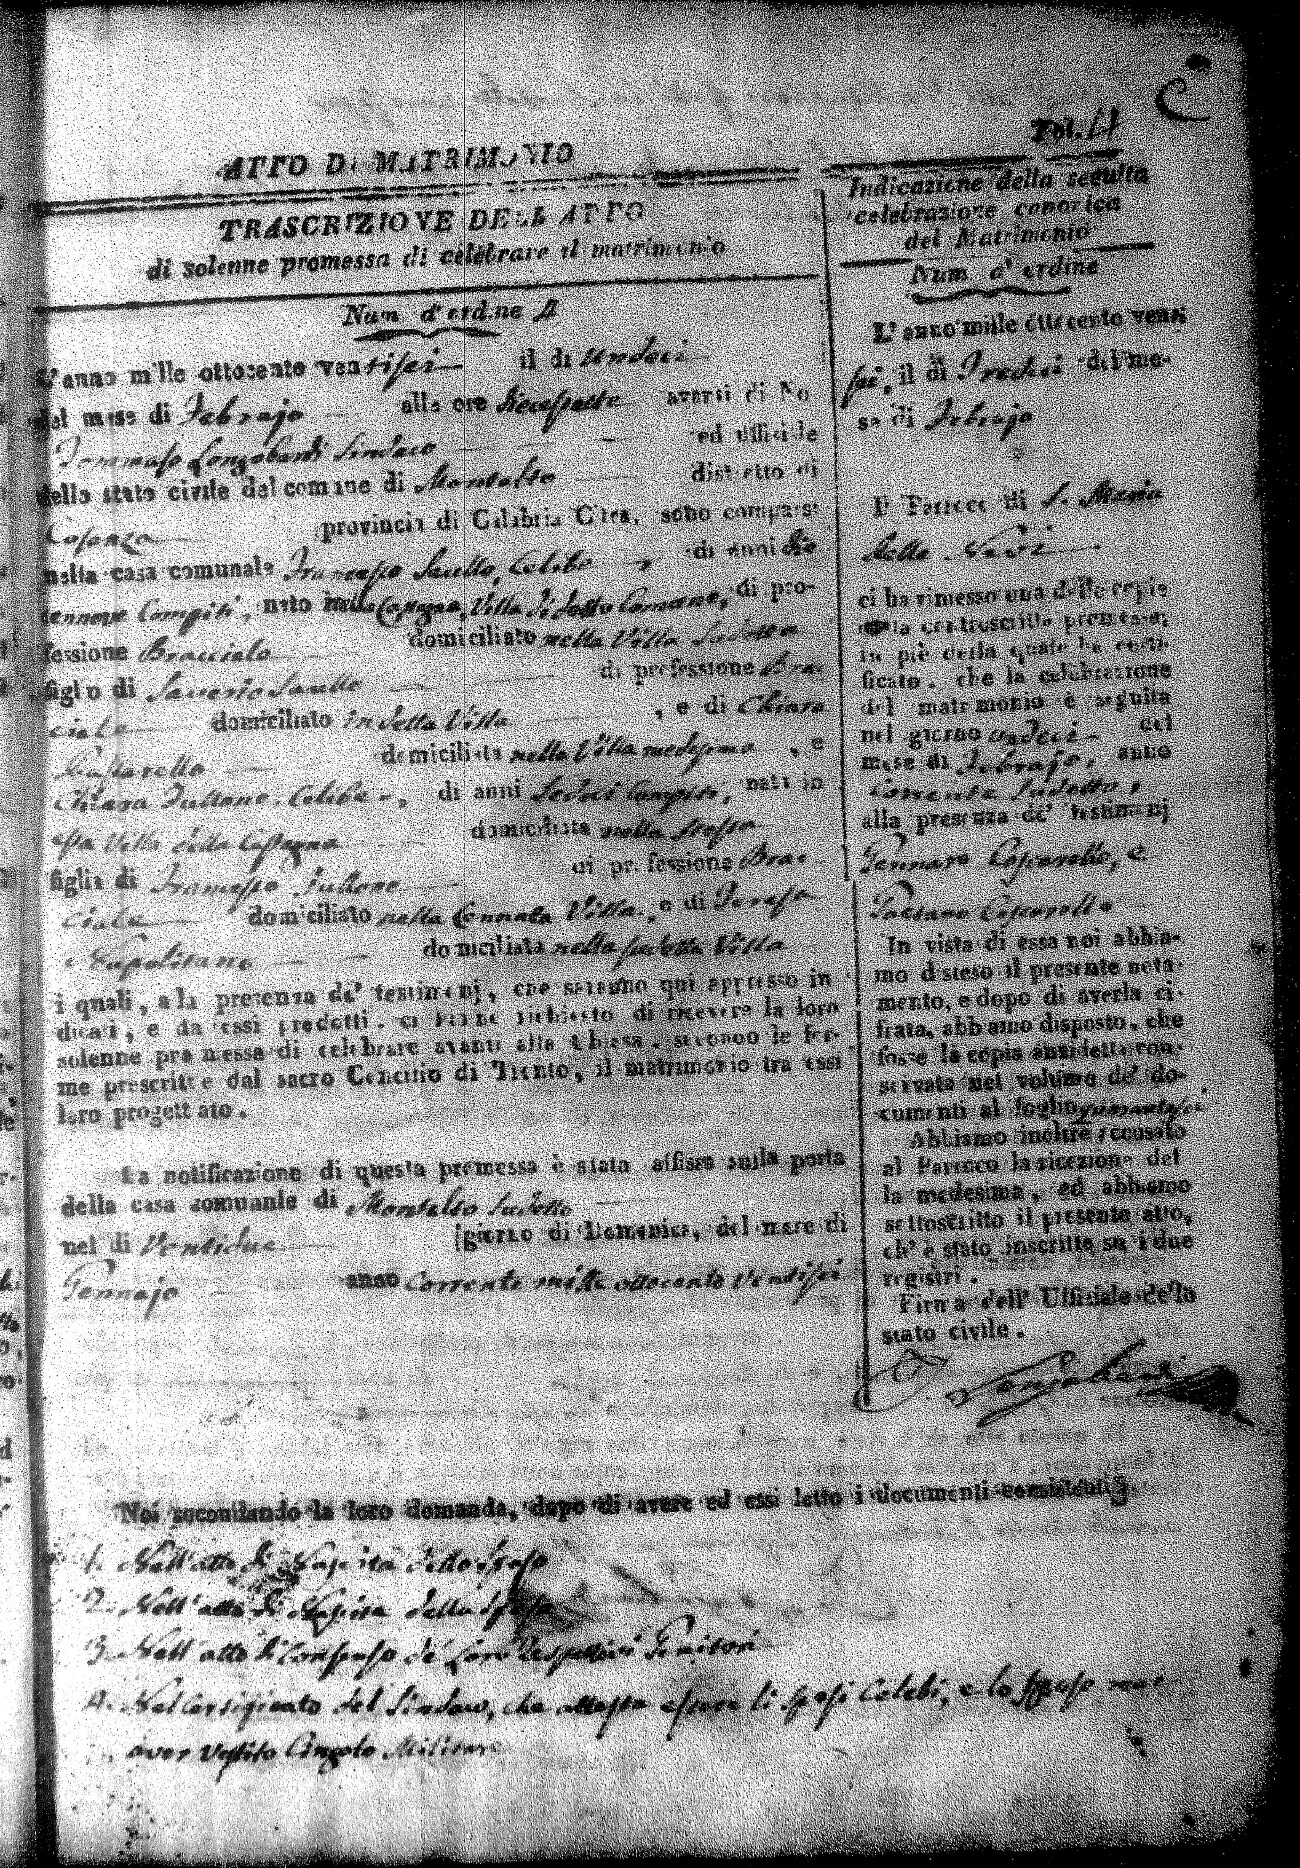 Fol. 4
ATTO DI MATRIMONIO
TRASCRIZIONE DELL ATTO
di solenne promessa di celebrare il matrimonio
Num d'ordine 4
L'anno mille ottocento ventisei il dì undeci
del mese di Febrajo alle ore diecesette avanti di No
Tommaso Longobardi Sindaco ed ufficiale
dello stato civile del comune di Montalto distretto di
Cosenza provincia di Calabria Citra, sono comparsi
nella casa comunale Francesco Celibe di anni die
cennove Compiti, nato in Villa Comune, di pro-
fessione Bracciale domiciliato nella Villa sudetta
figlio di Saverio di professione Bra-
ciale domiciliato in detta Villa, e di Chiara
domiciliata nella Villa medesima, e
Chiara Celibe, di anni Sedeci Compiti, nata in
essa Villa domiciliata nella stessa
figlia di Francesco di professione Bra-
ciale domiciliato nella Cennata Villa, e di Teresa
Napolitano domiciliata nella sudetta Villa
i quali, alla presenza de' testimonj, che saranno qui appresso in
dicati, e da essi prodotti, ci hanno richiesto di ricevere la loro
solenne promessa di celebrare avanti alla Chiesa, secondo le for-
me prescritte dal sacro Concilio di Trento, il matrimonio tra essi
loro progettato.
La notificazione di questa promessa è stata affissa sulla porta
della casa comunale di Montalto sudetto
nel dì Ventidue giorno di Domenica, del mese di
Gennajo anno corrente mille ottocento Ventisei
Indicazione della seguita
celebrazione canonica
del Matrimonio
Num d'ordine
L'anno mille ottocento venti
sei, il dì Tredici del me-
se di Febrajo
Il Parroco di S. Maria
della Nevi
ci ha rimesso una delle copie
della controscritta promessa,
in piè della quale ha certi-
ficato, che la celebrazione
del matrimonio è seguita
nel giorno undeci del
mese di Febrajo, anno
Corrente sudetto,
alla presenza de' testimonj
Gennaro, e
Gaetano
In vista di essa noi abbia-
mo disteso il presente nota-
mento, e dopo di averla ci-
frata, abbiamo disposto, che
fosse la copia anzidetta con-
servata nel volume de' do-
cumenti al foglio quarantasei
Abbiamo inoltre accusato
al Parroco la ricezione del
la medesima, ed abbiamo
sottoscritto il presente atto,
ch' è stato inscritto su i due
registri.
Firma dell' Uffiziale dello
stato civile.
T. Longobardi
Noi secondando la loro domanda, dopo di avere ed essi letto i documenti consistenti
1. Nell'atto di Nascita dello sposo
2. Nell'atto di Nascita della sposa
3. Nell'atto di Consenso de' loro respettivi Genitori
4. Nel Certificato del Sindaco, che attesta essere li sposi Celibi, e lo sposo non
aver vestito Cingolo Militare